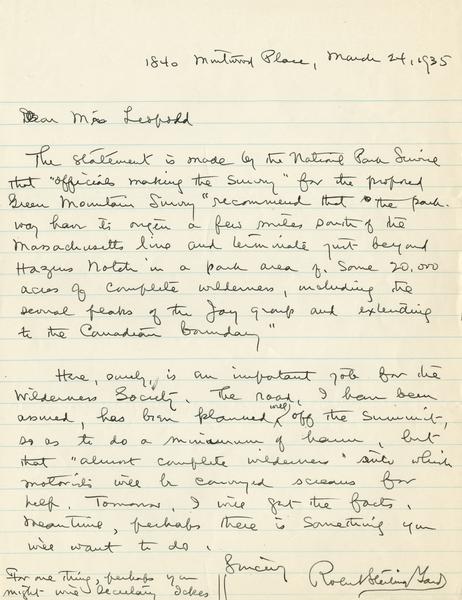 1840 Mintwood Place, March 24, 1935
Dear Miss Leopold
The statement is made by the National Park Service
that "officials making the survey" for the proposed
Green Mountain Survey "recommend that the park-
way have its origin a few miles south of the
Massachusetts line and terminate just beyond
Hazens Notch in a park area of some 20,000
acres of complete wilderness, including the
several peaks of the Jay group and extending
to the Canadian boundary"
Here, surely, is an important job for the
Wilderness Society. The road, I have been
assured, has been planned well off the summit,
so as to do a minimum of harm, but
that "almost complete wilderness" into which
motorists will be conveyed screams for
help. Tomorrow, I will get the facts.
Meantime, perhaps there is something you
will want to do.
Sincerely
Robert Sterling Yard
For one thing, perhaps you
might wire Secretary Ickes